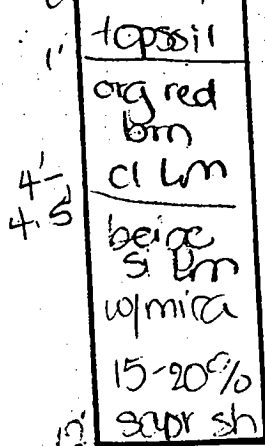 topsoil
1'
org red
brn
cl Lm
4'-
4.5
beige
si Lm
w/mica
15-20%
sapr sh